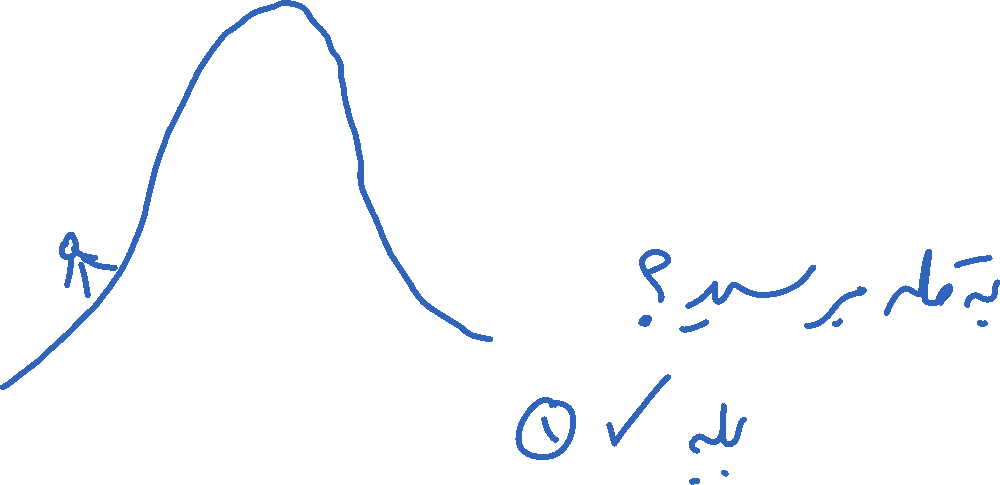 به قله برسید؟
بله ✓ ①